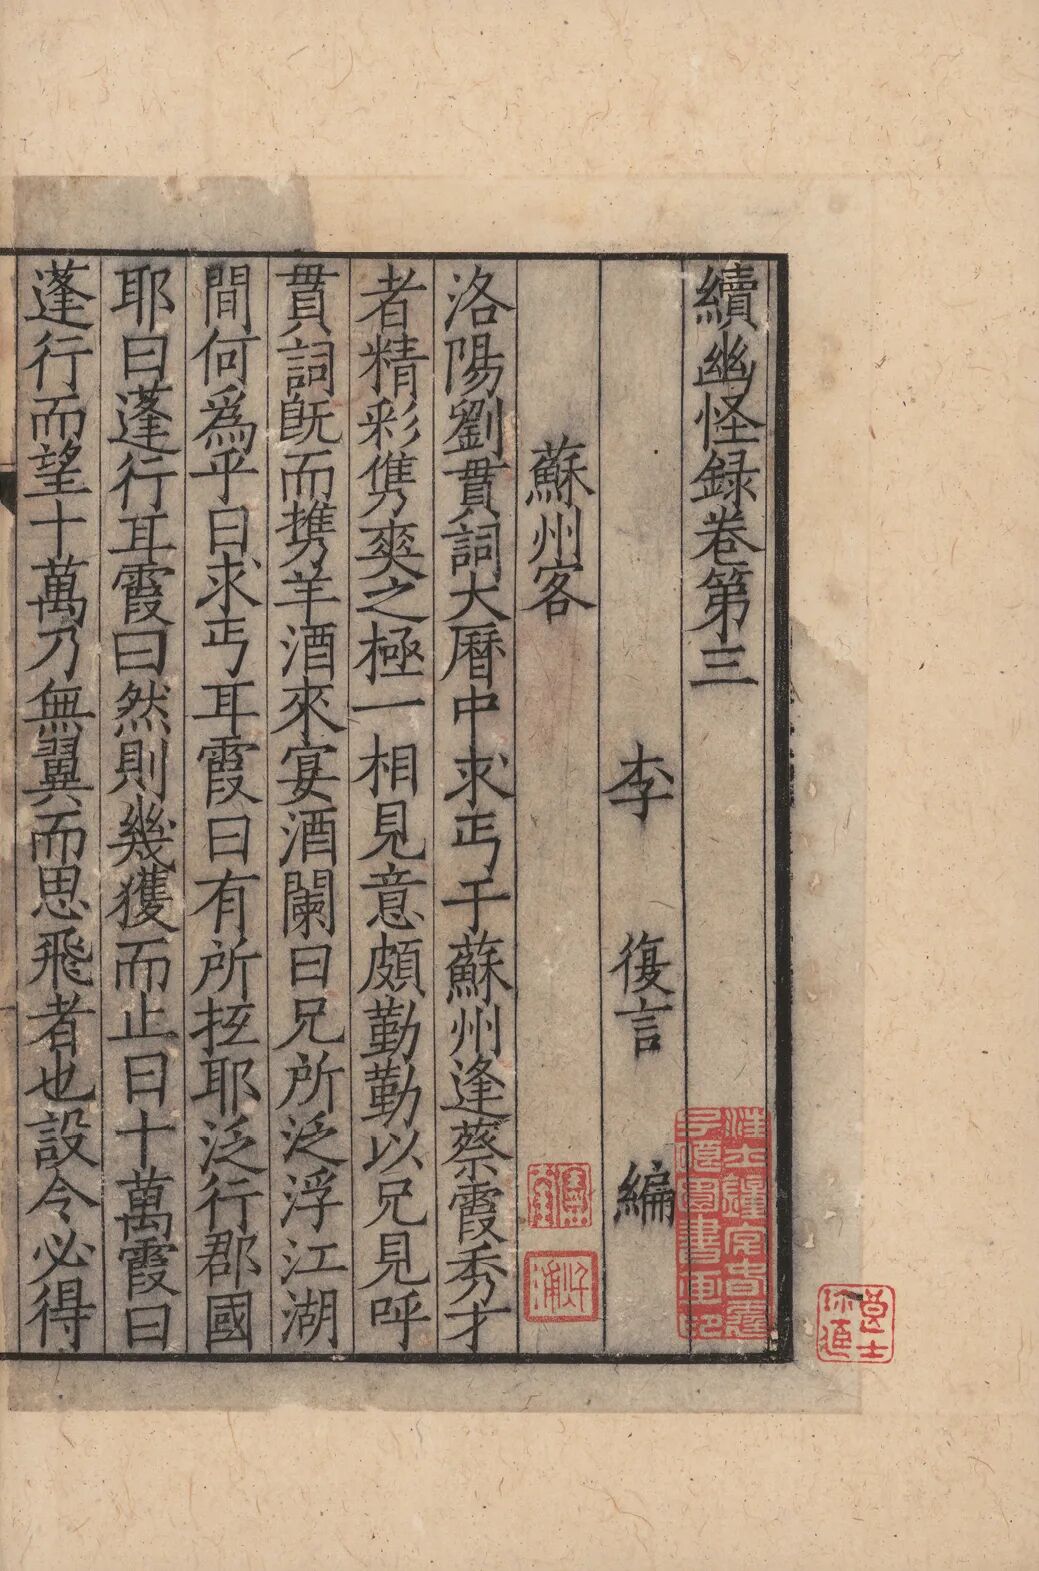 續幽怪録卷第三
李復言編
蘇州客
洛陽劉貫詞大曆中求丐于蘇州逢蔡霞秀才
者精彩雋爽之極一相見意頗勤勤以兄見呼
貫詞既而攜羊酒來宴酒闌曰兄所泛浮江湖
間何爲乎曰求丐耳霞曰有所抂耶泛行郡國
耶曰蓬行耳霞曰然則幾獲而止曰十萬霞曰
蓬行而望十萬乃無翼而思飛者也設令必得